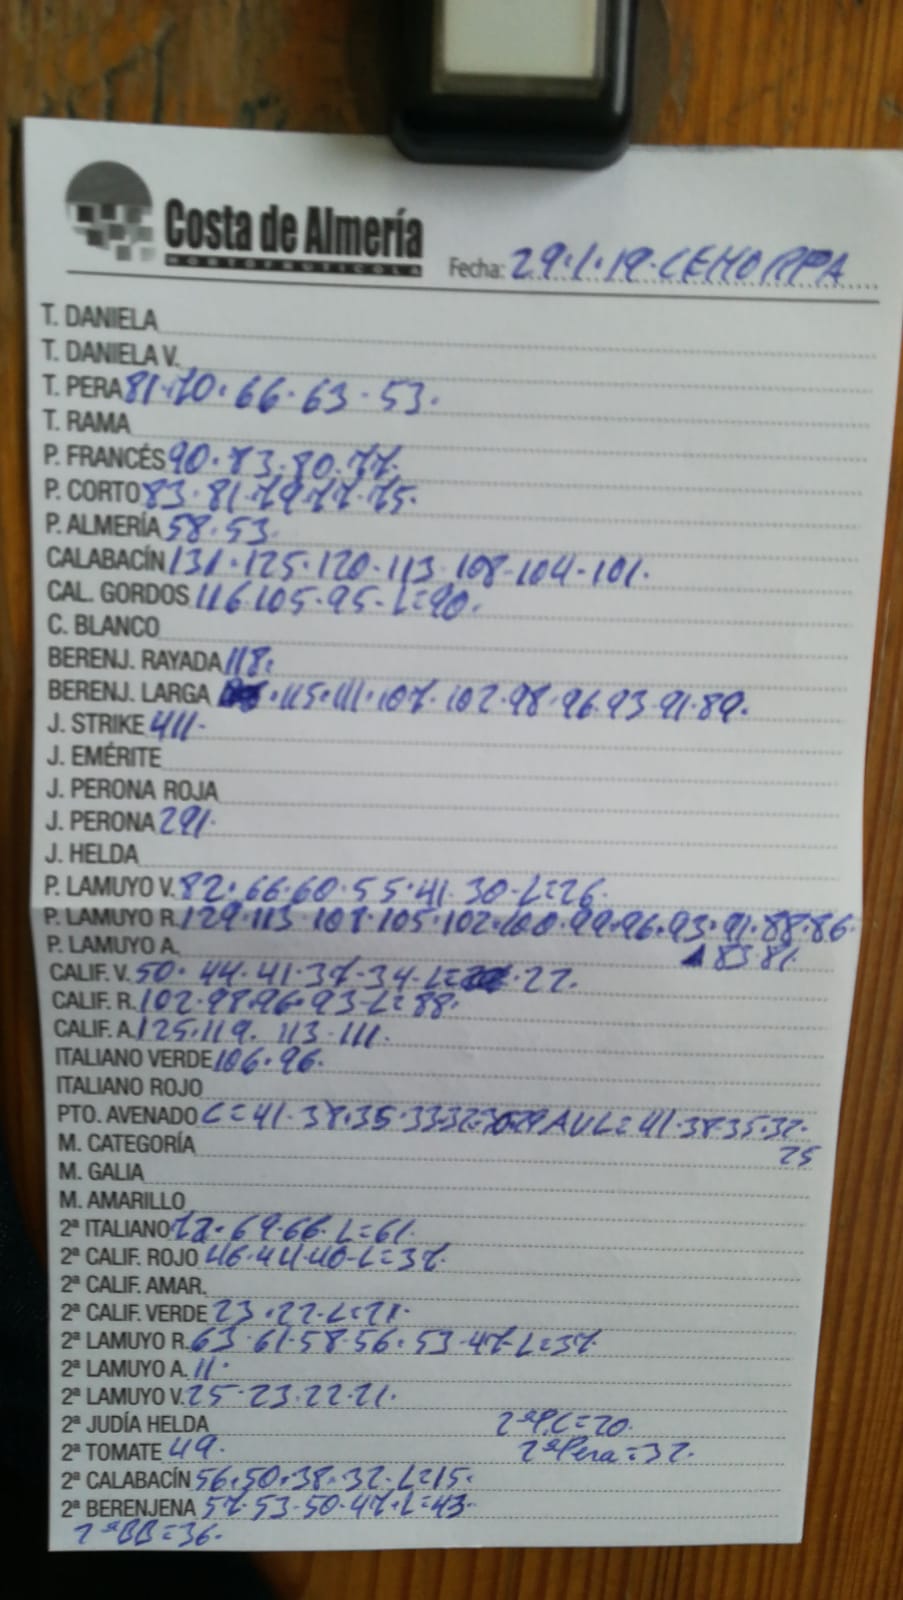 Costa de Almería
HORTOFRUTICOLA
Fecha: 29.1.19. CEHORPA
T. DANIELA
T. DANIELA V.
T. PERA 81.70.66.63.53.
T. RAMA
P. FRANCÉS 90.83.80.77.
P. CORTO 83.81.79.77.75.
P. ALMERÍA 58.53.
CALABACÍN 131.125.120.113.108.104.101.
CAL. GORDOS 116.105.95.L=90.
C. BLANCO
BERENJ. RAYADA 118.
BERENJ. LARGA .115.111.107.102.98.96.93.91.89.
J. STRIKE 411.
J. EMÉRITE
J. PERONA ROJA
J. PERONA 291.
J. HELDA
P. LAMUYO V. 82.66.60.55.41.30.L=26.
P. LAMUYO R. 129.113.108.105.102.100.99.96.93.91.88.86.
P. LAMUYO A. 83.81.
CALIF. V. 50.44.41.37.34.L=22.
CALIF. R. 102.98.96.93.L=88.
CALIF. A. 125.119.113.111.
ITALIANO VERDE 106.96.
ITALIANO ROJO
PTO. AVENADO L=41.38.35.33.32.30.29 AVL=41.38.35.32.
25
M. CATEGORÍA
M. GALIA
M. AMARILLO
2ª ITALIANO 72.69.66.L=61.
2ª CALIF. ROJO 46.44.40.L=37.
2ª CALIF. AMAR.
2ª CALIF. VERDE 23.22.L=21.
2ª LAMUYO R. 63.61.58.56.53.47.L=37.
2ª LAMUYO A. 11.
2ª LAMUYO V. 25.23.22.21.
2ª JUDÍA HELDA 2ªP.C=20.
2ª TOMATE 49. 2ªPera=32.
2ª CALABACÍN 56.50.38.32.L=15.
2ª BERENJENA 57.53.50.47.L=43.
2ªBB=36.